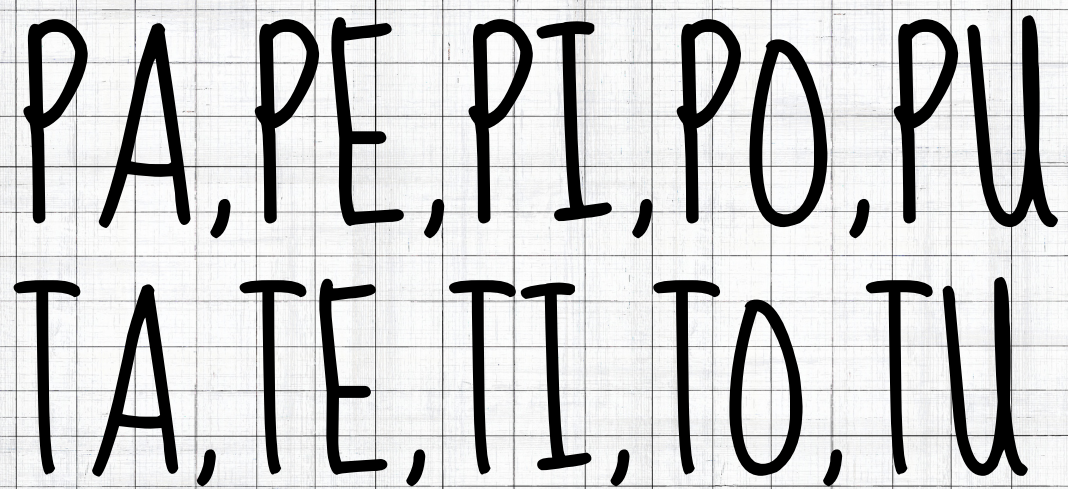 PA, PE, PI, PO, PU
TA, TE, TI, TO, TU